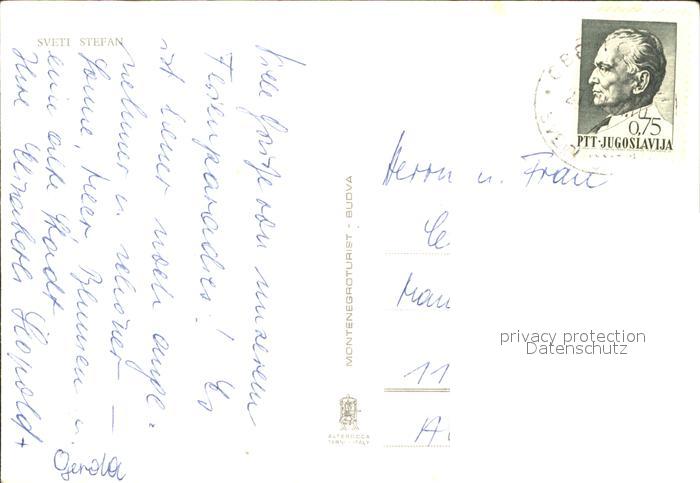 SVETI STEFAN
Viele Grüße von unserem
Ferienparadies! Es
ist heuer noch ange-
nehmer u. schöner —
Sonne, Meer, Blumen u.
eine alte Stadt
Ihre Elisabeth Leopold +
Gerda
MONTENEGROTURIST - BUDVA
ALTEROCCA
TERNI - ITALY
0,75
PTT-JUGOSLAVIJA
Herrn u. Frau
11
privacy protection
Datenschutz